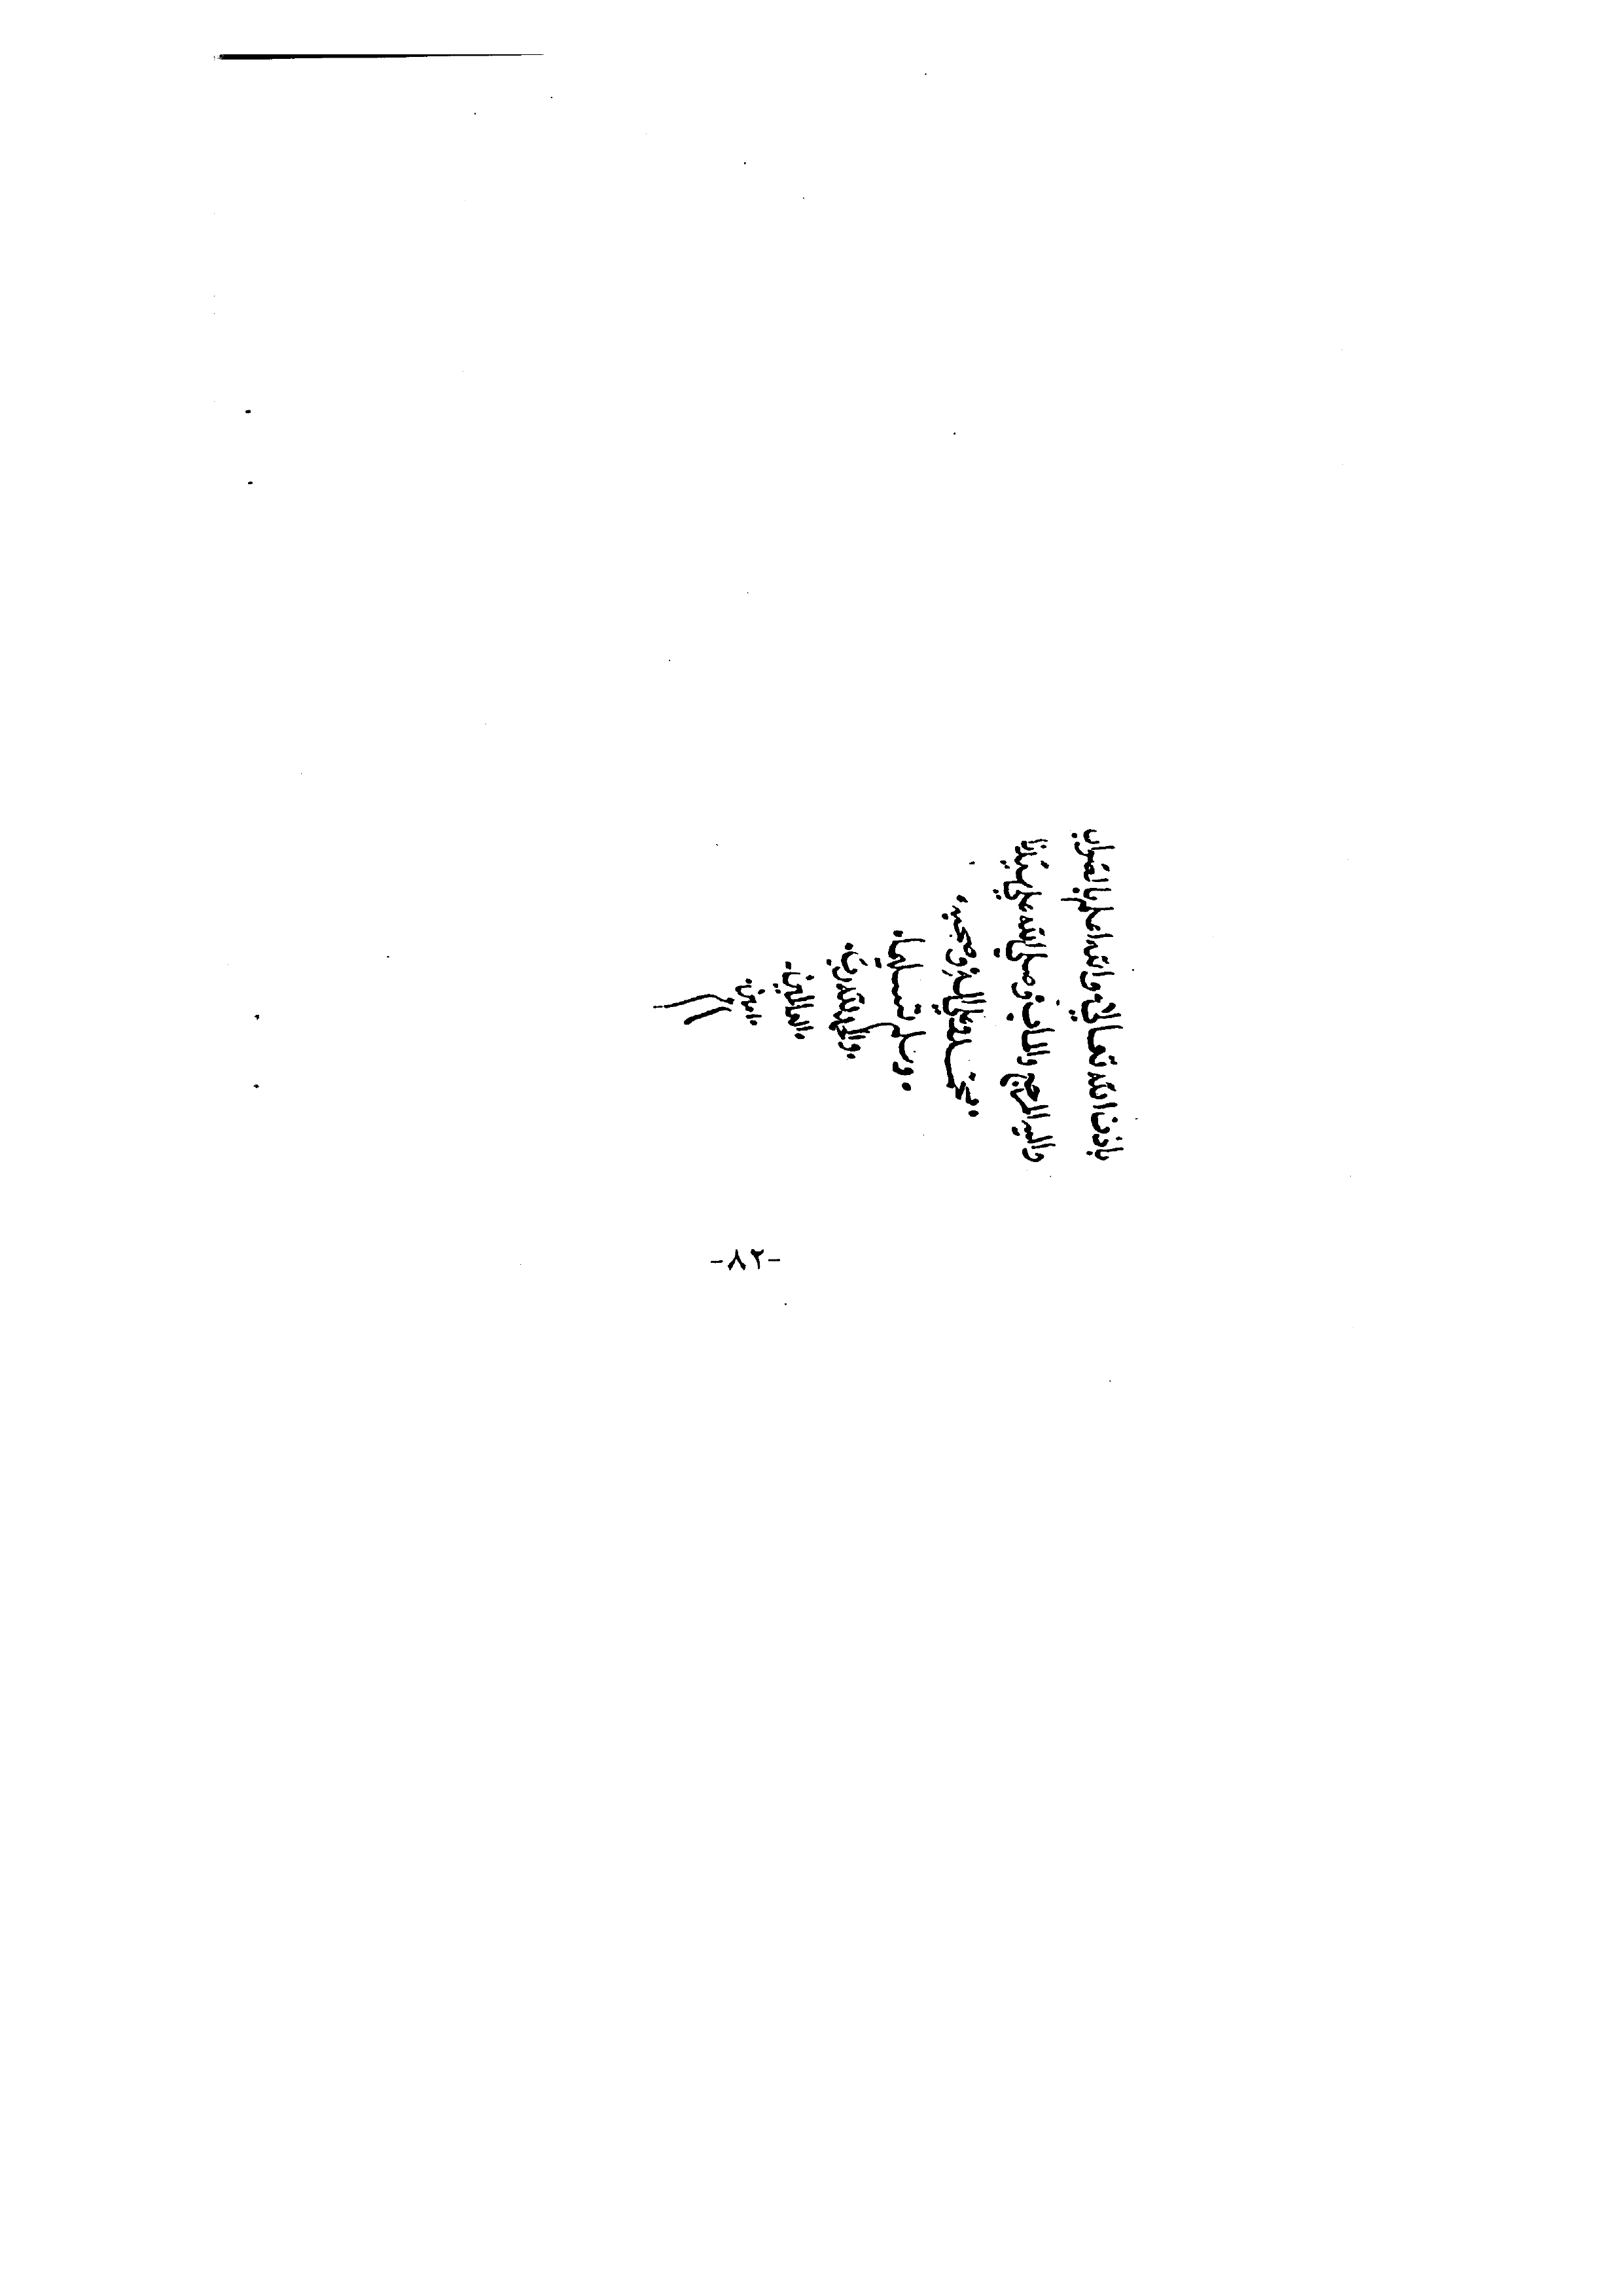 باذن الله تعالى والله اعلم بالصواب
واليه المرجع والماب وصلى الله على سيدنا
محمد وعلى اله وصحبه
وسلم تسليما
والحمد لله رب
العالمين
امين
-٨٢-